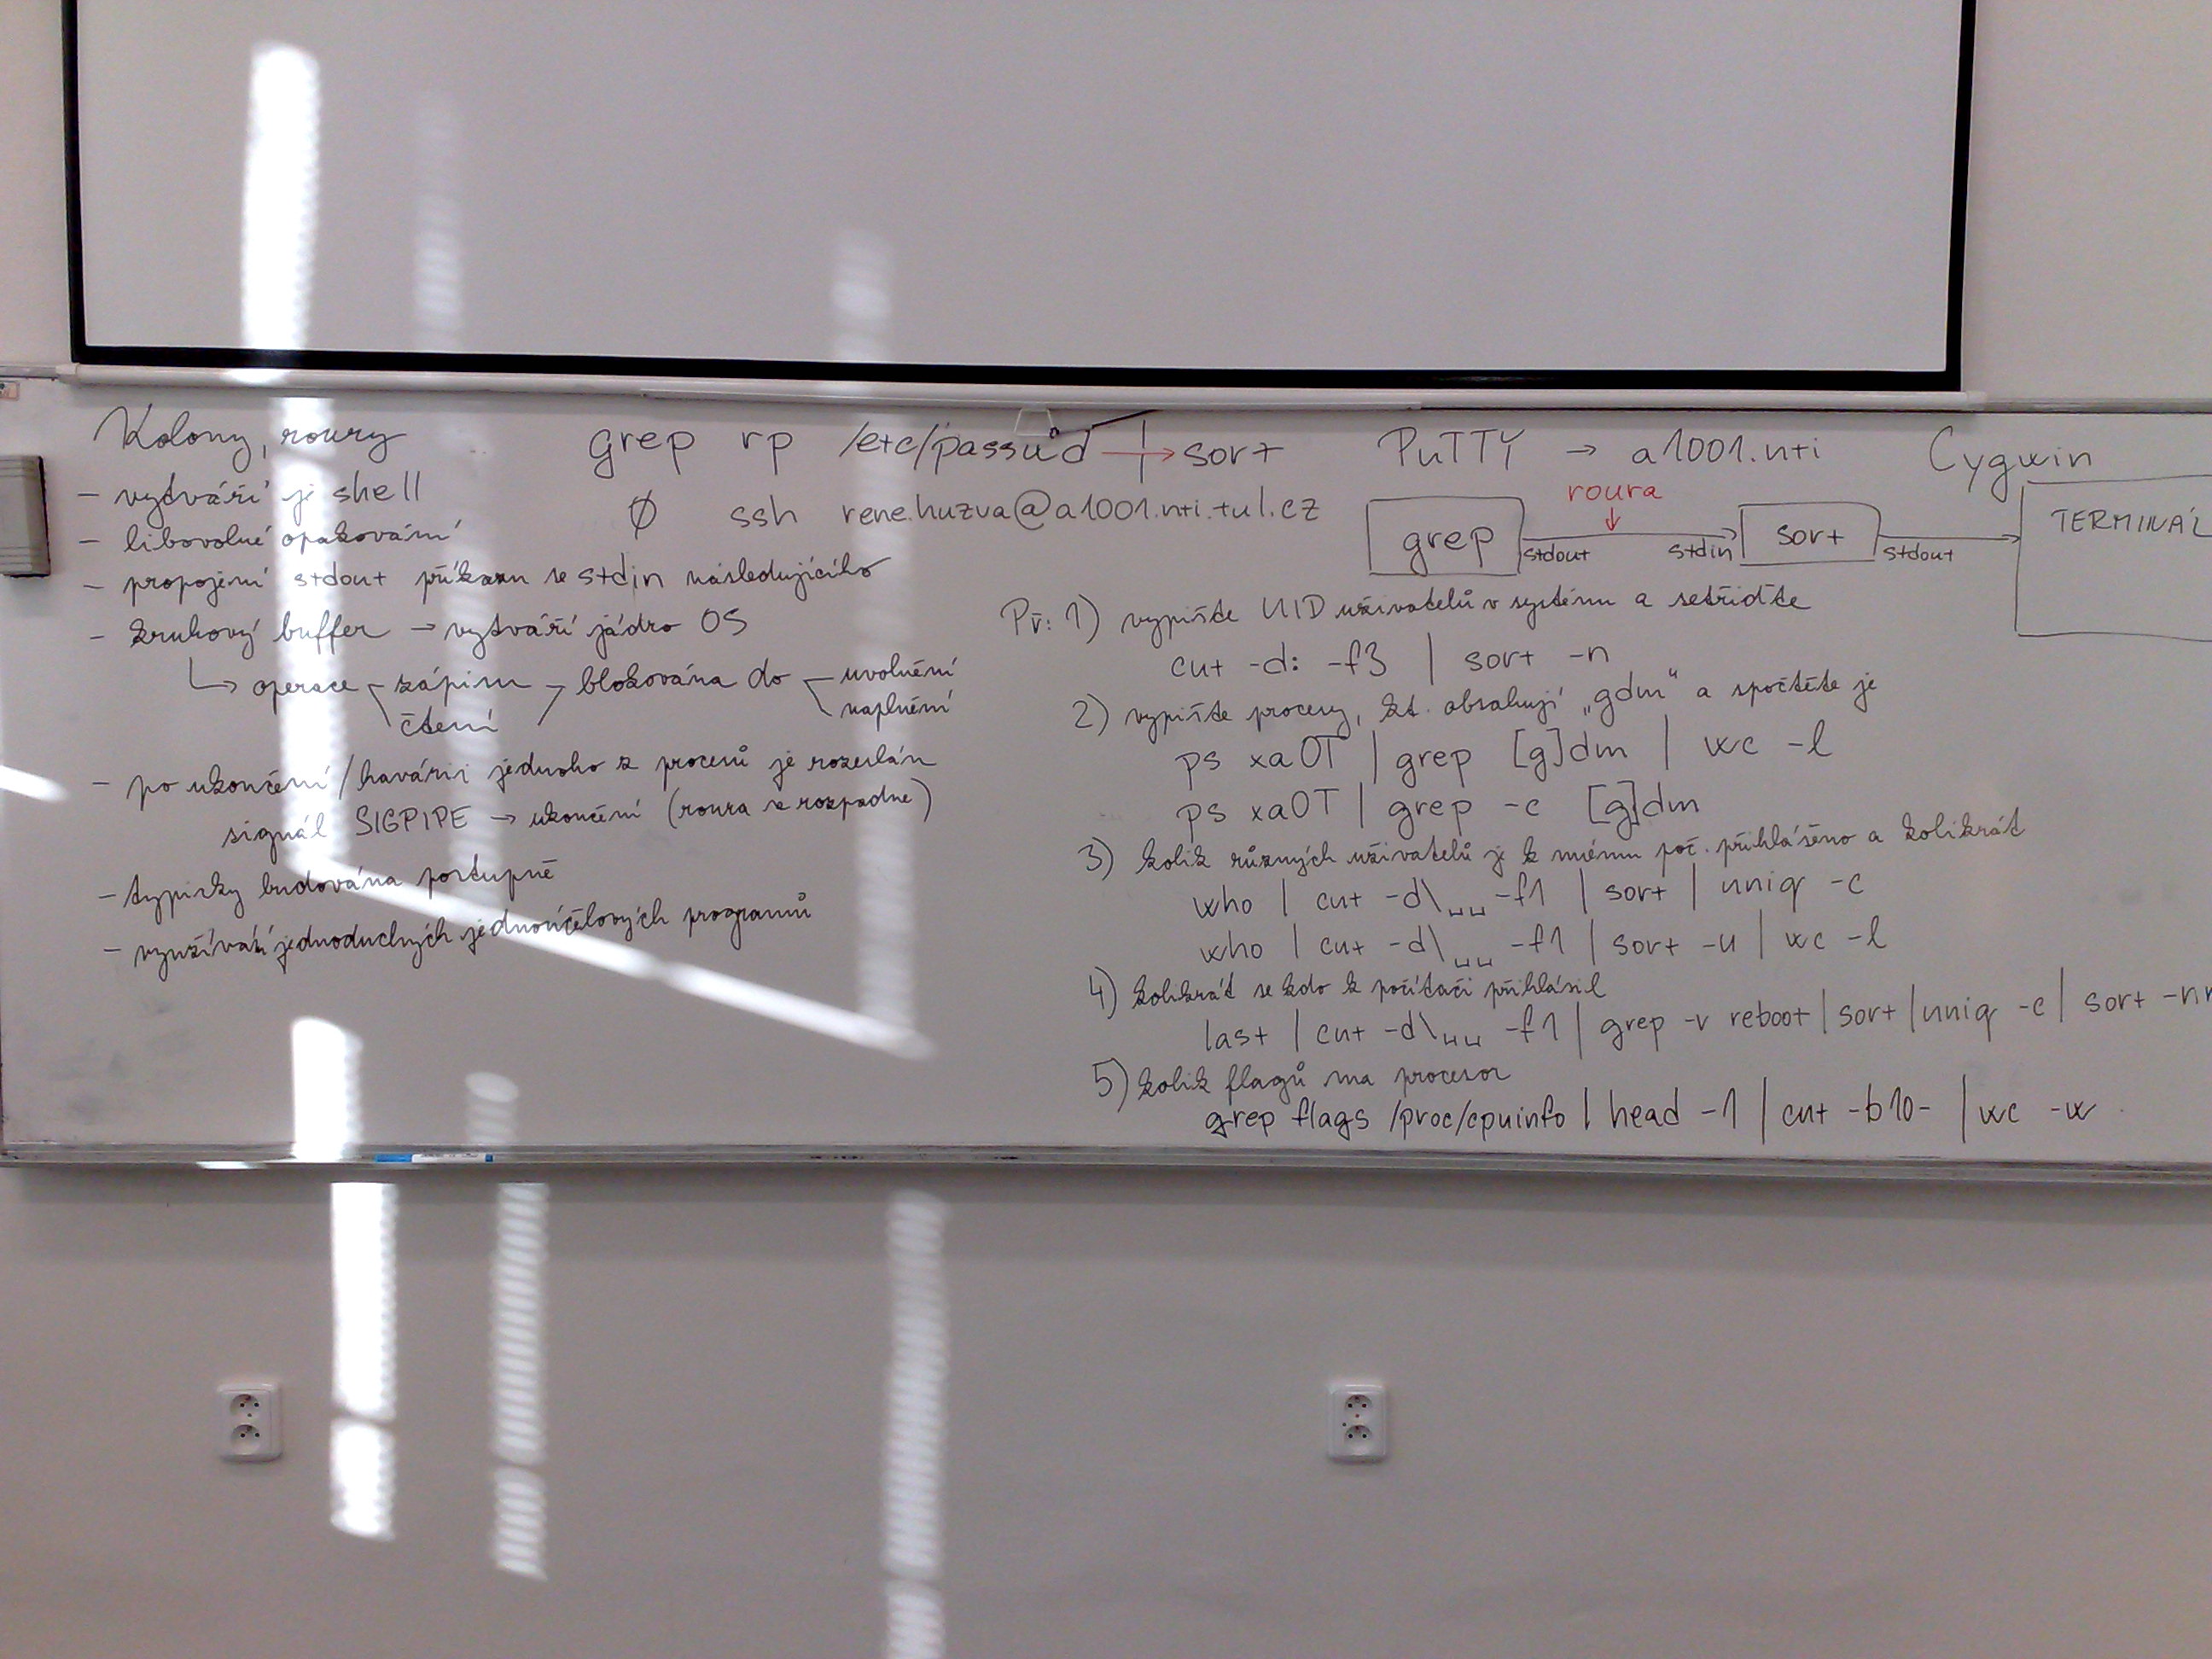 Kolony, roury
- vytváří je shell
- libovolné opakování
- propojení stdout příkazu se stdin následujícího
- kruhový buffer → vytváří jádro OS
↳ operace zápisu blokována do uvolnění
čtení naplnění
- po ukončení / havárii jednoho z procesů je rozeslán
signál SIGPIPE → ukončení (roura se rozpadne)
- typicky budována postupně
- využívání jednoduchých jednoúčelových programů
grep rp /etc/passwd | → sort
∅ ssh rene.huzva@a1001.nti.tul.cz
PuTTY → a1001.nti
Cygwin
roura
↓
grep stdout stdin sort stdout TERMINÁL
Př: 1) vypište UID uživatelů v systému a setřiďte
cut -d: -f3 | sort -n
2) vypište procesy, kt. obsahují „gdm“ a spočtěte je
ps xaOT | grep [g]dm | wc -l
ps xaOT | grep -c [g]dm
3) kolik různých uživatelů je k mému poč. přihlášeno a kolikrát
who | cut -d\␣␣-f1 | sort | uniq -c
who | cut -d\␣␣ -f1 | sort -u | wc -l
4) kolikrát se kdo k počítači přihlásil
last | cut -d\␣␣ -f1 | grep -v reboot | sort | uniq -c | sort -nr
5) kolik flagů ma procesor
grep flags /proc/cpuinfo | head -1 | cut -b10- | wc -w